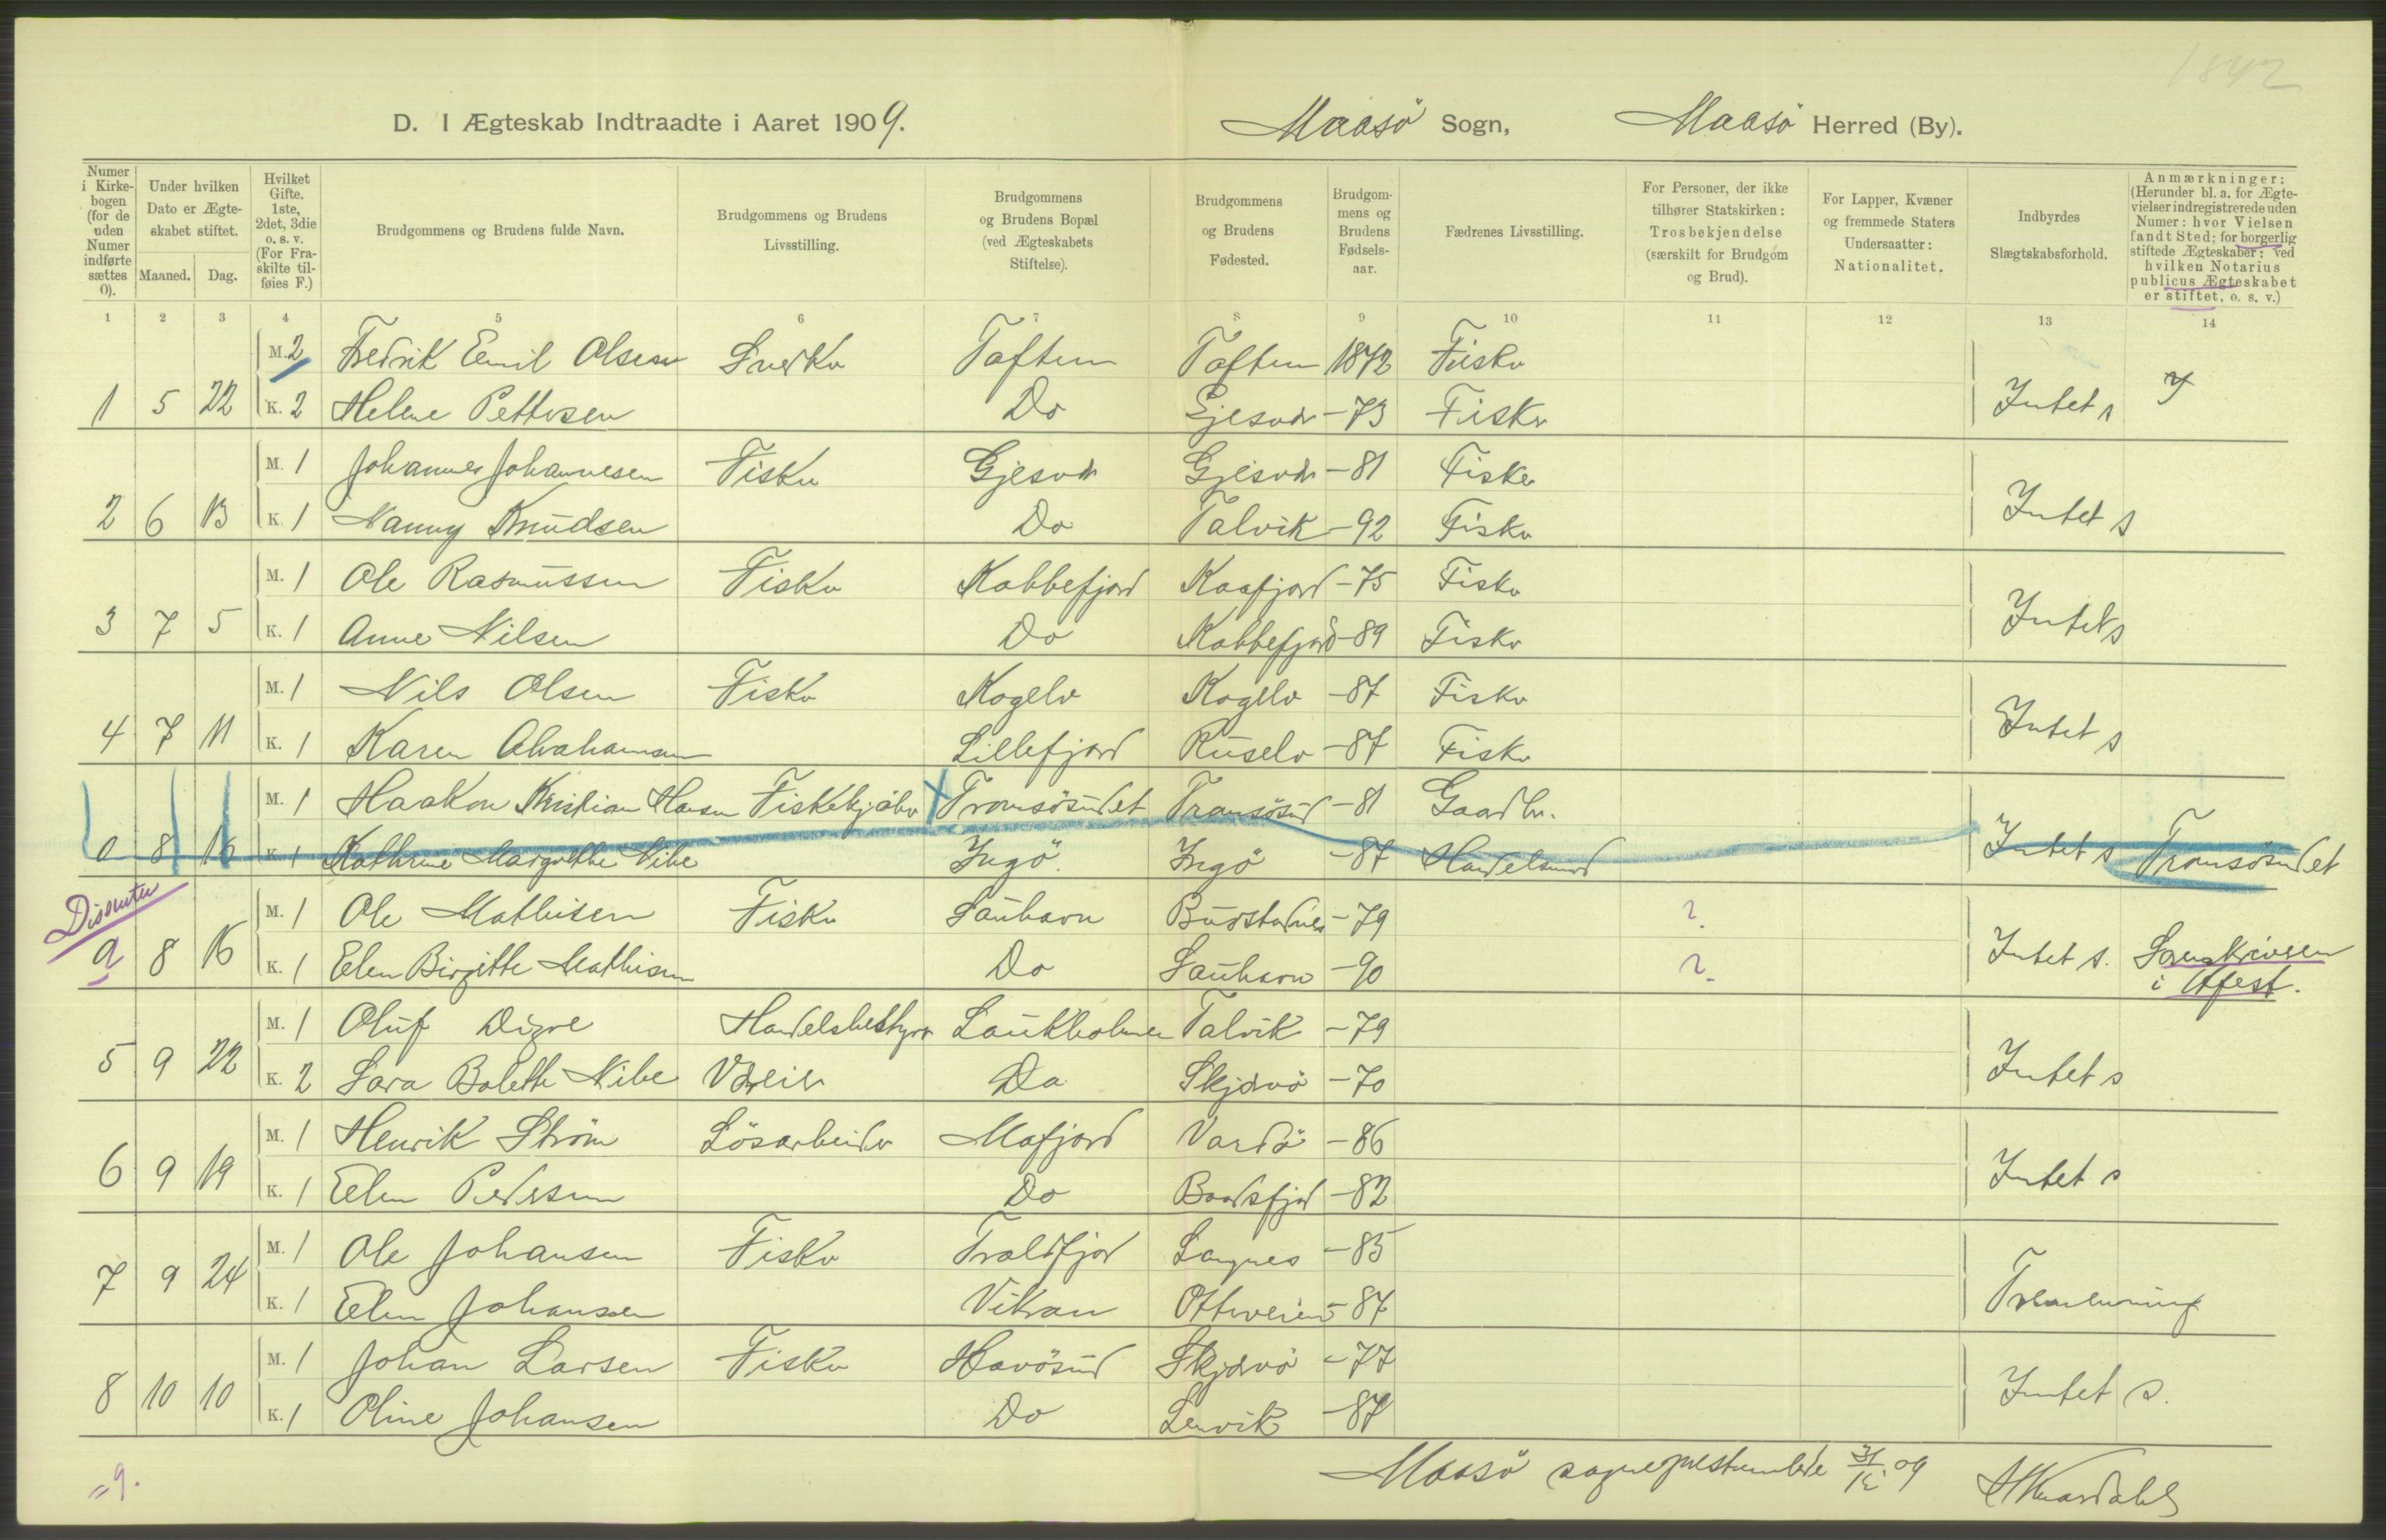 1842
D. I Ægteskab Indtraadte i Aaret 1909. Maasö Sogn, Maasö Herred (By).
Numer i Kirke-bogen (for de uden Numer indførte sættes 0). Under hvilken Dato er Ægte-skabet stiftet. Maaned. Dag. Hvilket Gifte. 1ste, 2det, 3die o. s. v. (For Fra-skilte til-føies F.) Brudgommens og Brudens fulde Navn. Brudgommens og Brudens Livsstilling. Brudgommens og Brudens Bopæl (ved Ægteskabets Stiftelse). Brudgommens og Brudens Fødested. Brudgom-mens og Brudens Fødsels-aar. Fædrenes Livsstilling. For Personer, der ikke tilhører Statskirken: Trosbekjendelse (særskilt for Brudgom og Brud). For Lapper, Kvæner og fremmede Staters Undersaatter: Nationalitet. Indbyrdes Slægtskabsforhold. Anmærkninger: (Herunder bl. a. for Ægte-vielser indregistrerede uden Numer: hvor Vielsen fandt Sted; for borgerlig stiftede Ægteskaber: ved hvilken Notarius publicus Ægteskabet er stiftet, o. s. v.)
1 2 3 4 5 6 7 8 9 10 11 12 13 14
M. 2 Fredrik Emil Olsen Toften Toften 1872 Fisker
1 5 22 K. 2 Helene Pettersen Do Gjesvær -73 Fisker Intet s
M. 1 Johannes Johannesen Fisker Gjesvær Gjesvær -81 Fisker
2 6 13 K. 1 Nanny Knudsen Do Talvik -92 Fisker Intet s
M. 1 Ole Rasmussen Fisker Kobbefjord Kaafjord -75 Fisker
3 7 5 K. 1 Anne Nilsen Do Kobbefjord -89 Fisker Intet s
M. 1 Nils Olsen Fisker Kogelv Kogelv -87 Fisker
4 7 11 K. 1 Karen Abrahamsen Lillefjord Ruselv -87 Fisker Intet s
M. 1 Haakon Kristian Hansen Fiskekjøber Tromsösundet Tromsösund -81 Gaardbr.
0 8 16 K. 1 Kathrine Margrethe Nibe Ingö. Ingö -87 Handelsmand Intet s Tromsösundet
Dissenter
M. 1 Ole Mathisen Fisker Sauhavn Burstadnes -79 ?
0 8 16 K. 1 Elen Birgitte Mathisen Do Sauhavn -90 ? Intet s. Sorenskriveren
i Hfest.
M. 1 Oluf Digre Handelsbestyrer Laukholmen Talvik -79
5 9 22 K. 2 Sara Bolette Nibe Do Skjervö -70 Intet s
M. 1 Henrik Ström Lösarbeider Mafjord Vardö -86
6 9 19 K. 1 Elen Pedersen Do Baadsfjord -82 Intet s
M. 1 Ole Johansen Fisker Troldfjord Langnes -85
7 9 24 K. 1 Elen Johansen Vikran Otterveien -87 Tremenning
M. 1 Johan Larsen Fisker Havösund Skjervö -77
8 10 10 K. 1 Oline Johansen Do Lervik -87 Intet s.
= 9.
Maasö sogneprestembede 31/12 09